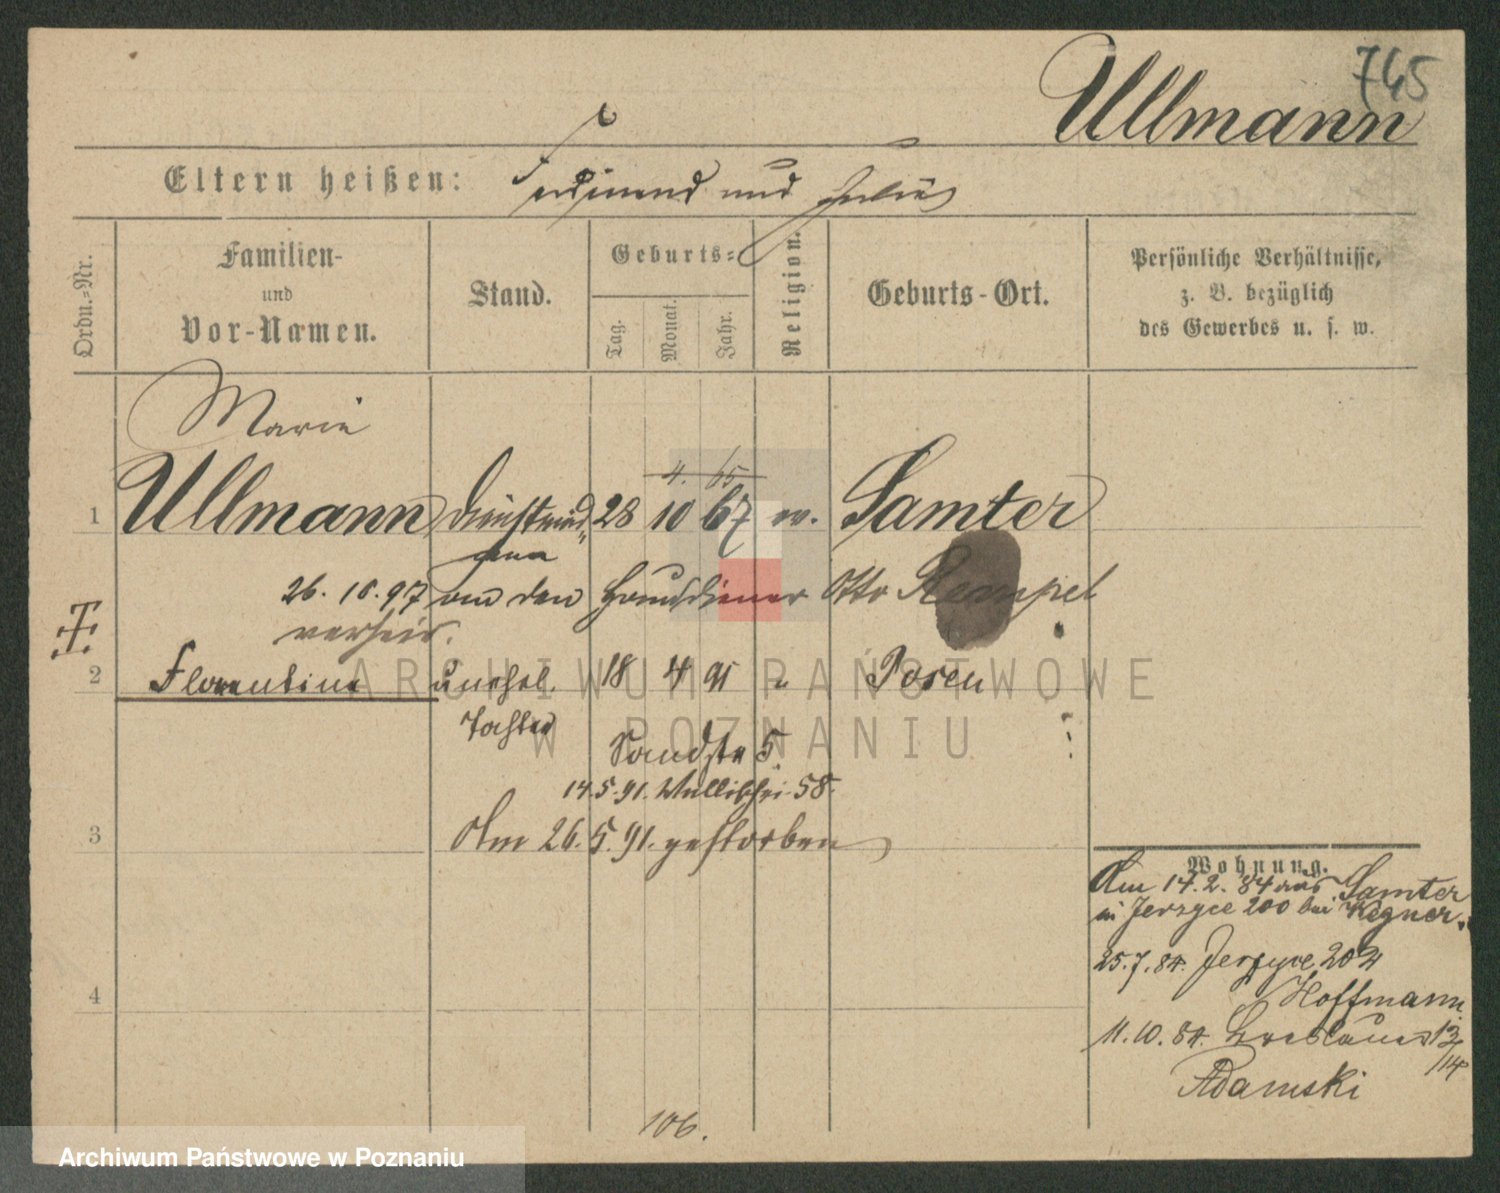 745
Ullmann
Eltern heißen: Ferdinand und Julie
Ordn.-Nr.
Familien-
und
Vor-Namen.
Stand.
Geburts-
Tag.
Monat.
Jahr.
Religion.
Geburts-Ort.
Persönliche Verhältnisse,
z. B. bezüglich
des Gewerbes u. s. w.
Marie
4. 65
1 Ullmann Dienstmäd 28 10 67 ev. Samter
26. 10. 97 an den Hausdiener Otto Rempel
verheir.
2 Florentine unehel. 18 4 91 Posen
Tochter
Sandstr 5.
14.5.91. Wallischei 58.
3 Am 26.5.91. gestorben
Wohnung.
Am 14.2.84 aus Samter
in Jerzyce 200 bei Kegner.
25.7.84. Jerzyce 202
Hoffmann
4
11.10.84. Breslauer 13/14
Adamski
106.
ARCHIWUM PAŃSTWOWE
W POZNANIU
Archiwum Państwowe w Poznaniu